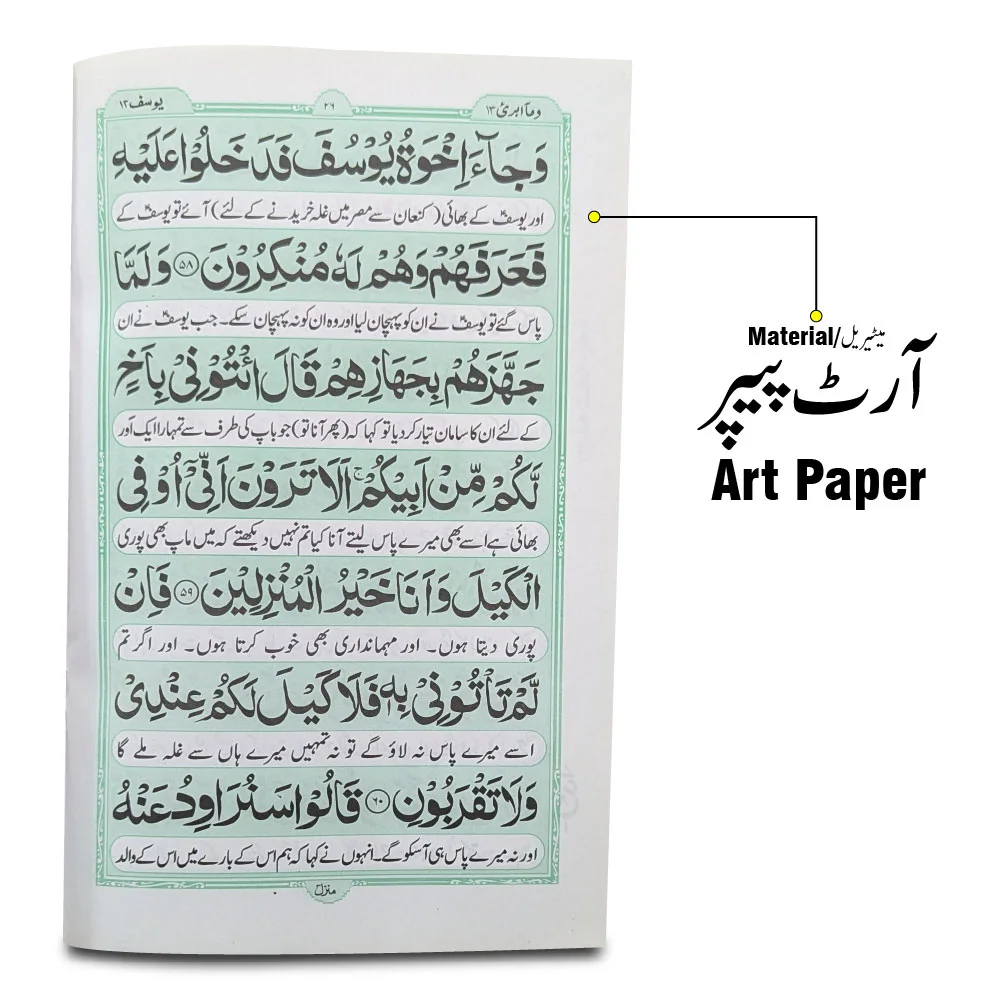 وما ابرئ ۱۳
۲۶
یوسف ۱۲
وَجَآءَ اِخْوَةُ يُوْسُفَ فَدَخَلُوْا عَلَيْهِ
اور یوسفؑ کے بھائی (کنعان سے مصر میں غلہ خریدنے کے لئے) آئے تو یوسفؑ کے
فَعَرَفَهُمْ وَهُمْ لَهٗ مُنْكِرُوْنَ ۵۸ وَلَمَّا
پاس گئے تو یوسفؑ نے ان کو پہچان لیا اور وہ ان کو نہ پہچان سکے۔ جب یوسفؑ نے ان
جَهَّزَهُمْ بِجَهَازِهِمْ قَالَ ائْتُوْنِيْ بِاَخٍ
کے لئے ان کا سامان تیار کر دیا تو کہا کہ (پھر آنا تو) جو باپ کی طرف سے تمہارا ایک اَور
لَّكُمْ مِّنْ اَبِيْكُمْ ۚ اَلَا تَرَوْنَ اَنِّيْٓ اُوْفِي
بھائی ہے اسے بھی میرے پاس لیتے آنا کیا تم نہیں دیکھتے کہ میں ماپ بھی پوری
الْكَيْلَ وَاَنَا خَيْرُ الْمُنْزِلِيْنَ ۵۹ فَاِنْ
پوری دیتا ہوں۔ اور مہمانداری بھی خوب کرتا ہوں۔ اور اگر تم
لَّمْ تَاْتُوْنِيْ بِهٖ فَلَا كَيْلَ لَكُمْ عِنْدِيْ
اسے میرے پاس نہ لاؤ گے تو نہ تمہیں میرے ہاں سے غلہ ملے گا
وَلَا تَقْرَبُوْنِ ۶۰ قَالُوْا سَنُرَاوِدُ عَنْهُ
اور نہ میرے پاس ہی آسکو گے۔ انہوں نے کہا کہ ہم اس کے بارے میں اس کے والد
منزل
Material/میٹیریل
آرٹ پیپر
Art Paper